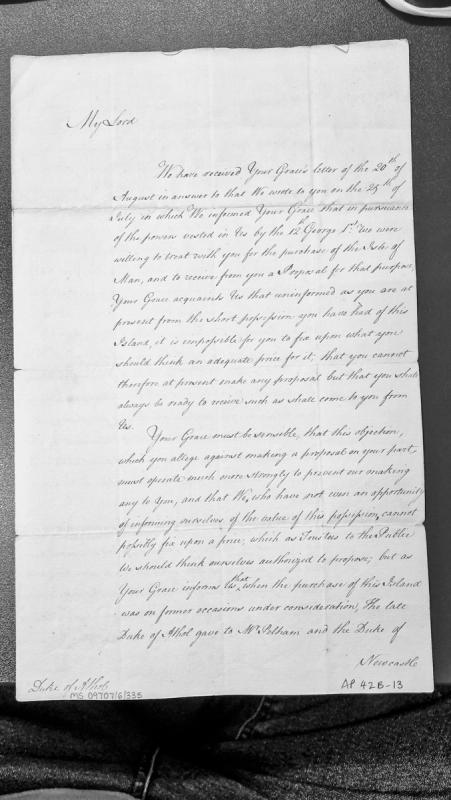 My Lord
We have received Your Grace's letter of the 20th of
August in answer to that We wrote to you on the 25th of
July in which We informed Your Grace that in pursuance
of the powers vested in Us by the 12th George 1st. We were
willing to treat with you for the purchase of the Isle of
Man, and to receive from you a Proposal for that purpose,
Your Grace acquaints Us that uninformed as you are at
present from the short possession you have had of this
Island, it is impossible for you to fix upon what you
should think an adequate price for it; that you cannot
therefore at present make any proposal but that you shall
always be ready to receive such as shall come to you from
Us.
Your Grace must be sensible, that this objection,
which you allege against making a proposal on your part,
must operate much more strongly to prevent our making
any to You, and that We, who have not even an opportunity
of informing ourselves of the value of this possession, cannot
possibly fix upon a price, which as Trustees to the Public
We should think ourselves authorized to propose; but as
Your Grace informs Us, that when the purchase of this Island
was on former occasions under consideration, The late
Duke of Athol gave to Mr. Pelham and the Duke of
Newcastle
Duke of Athol
MS 09707/6/335
AP 42B-13